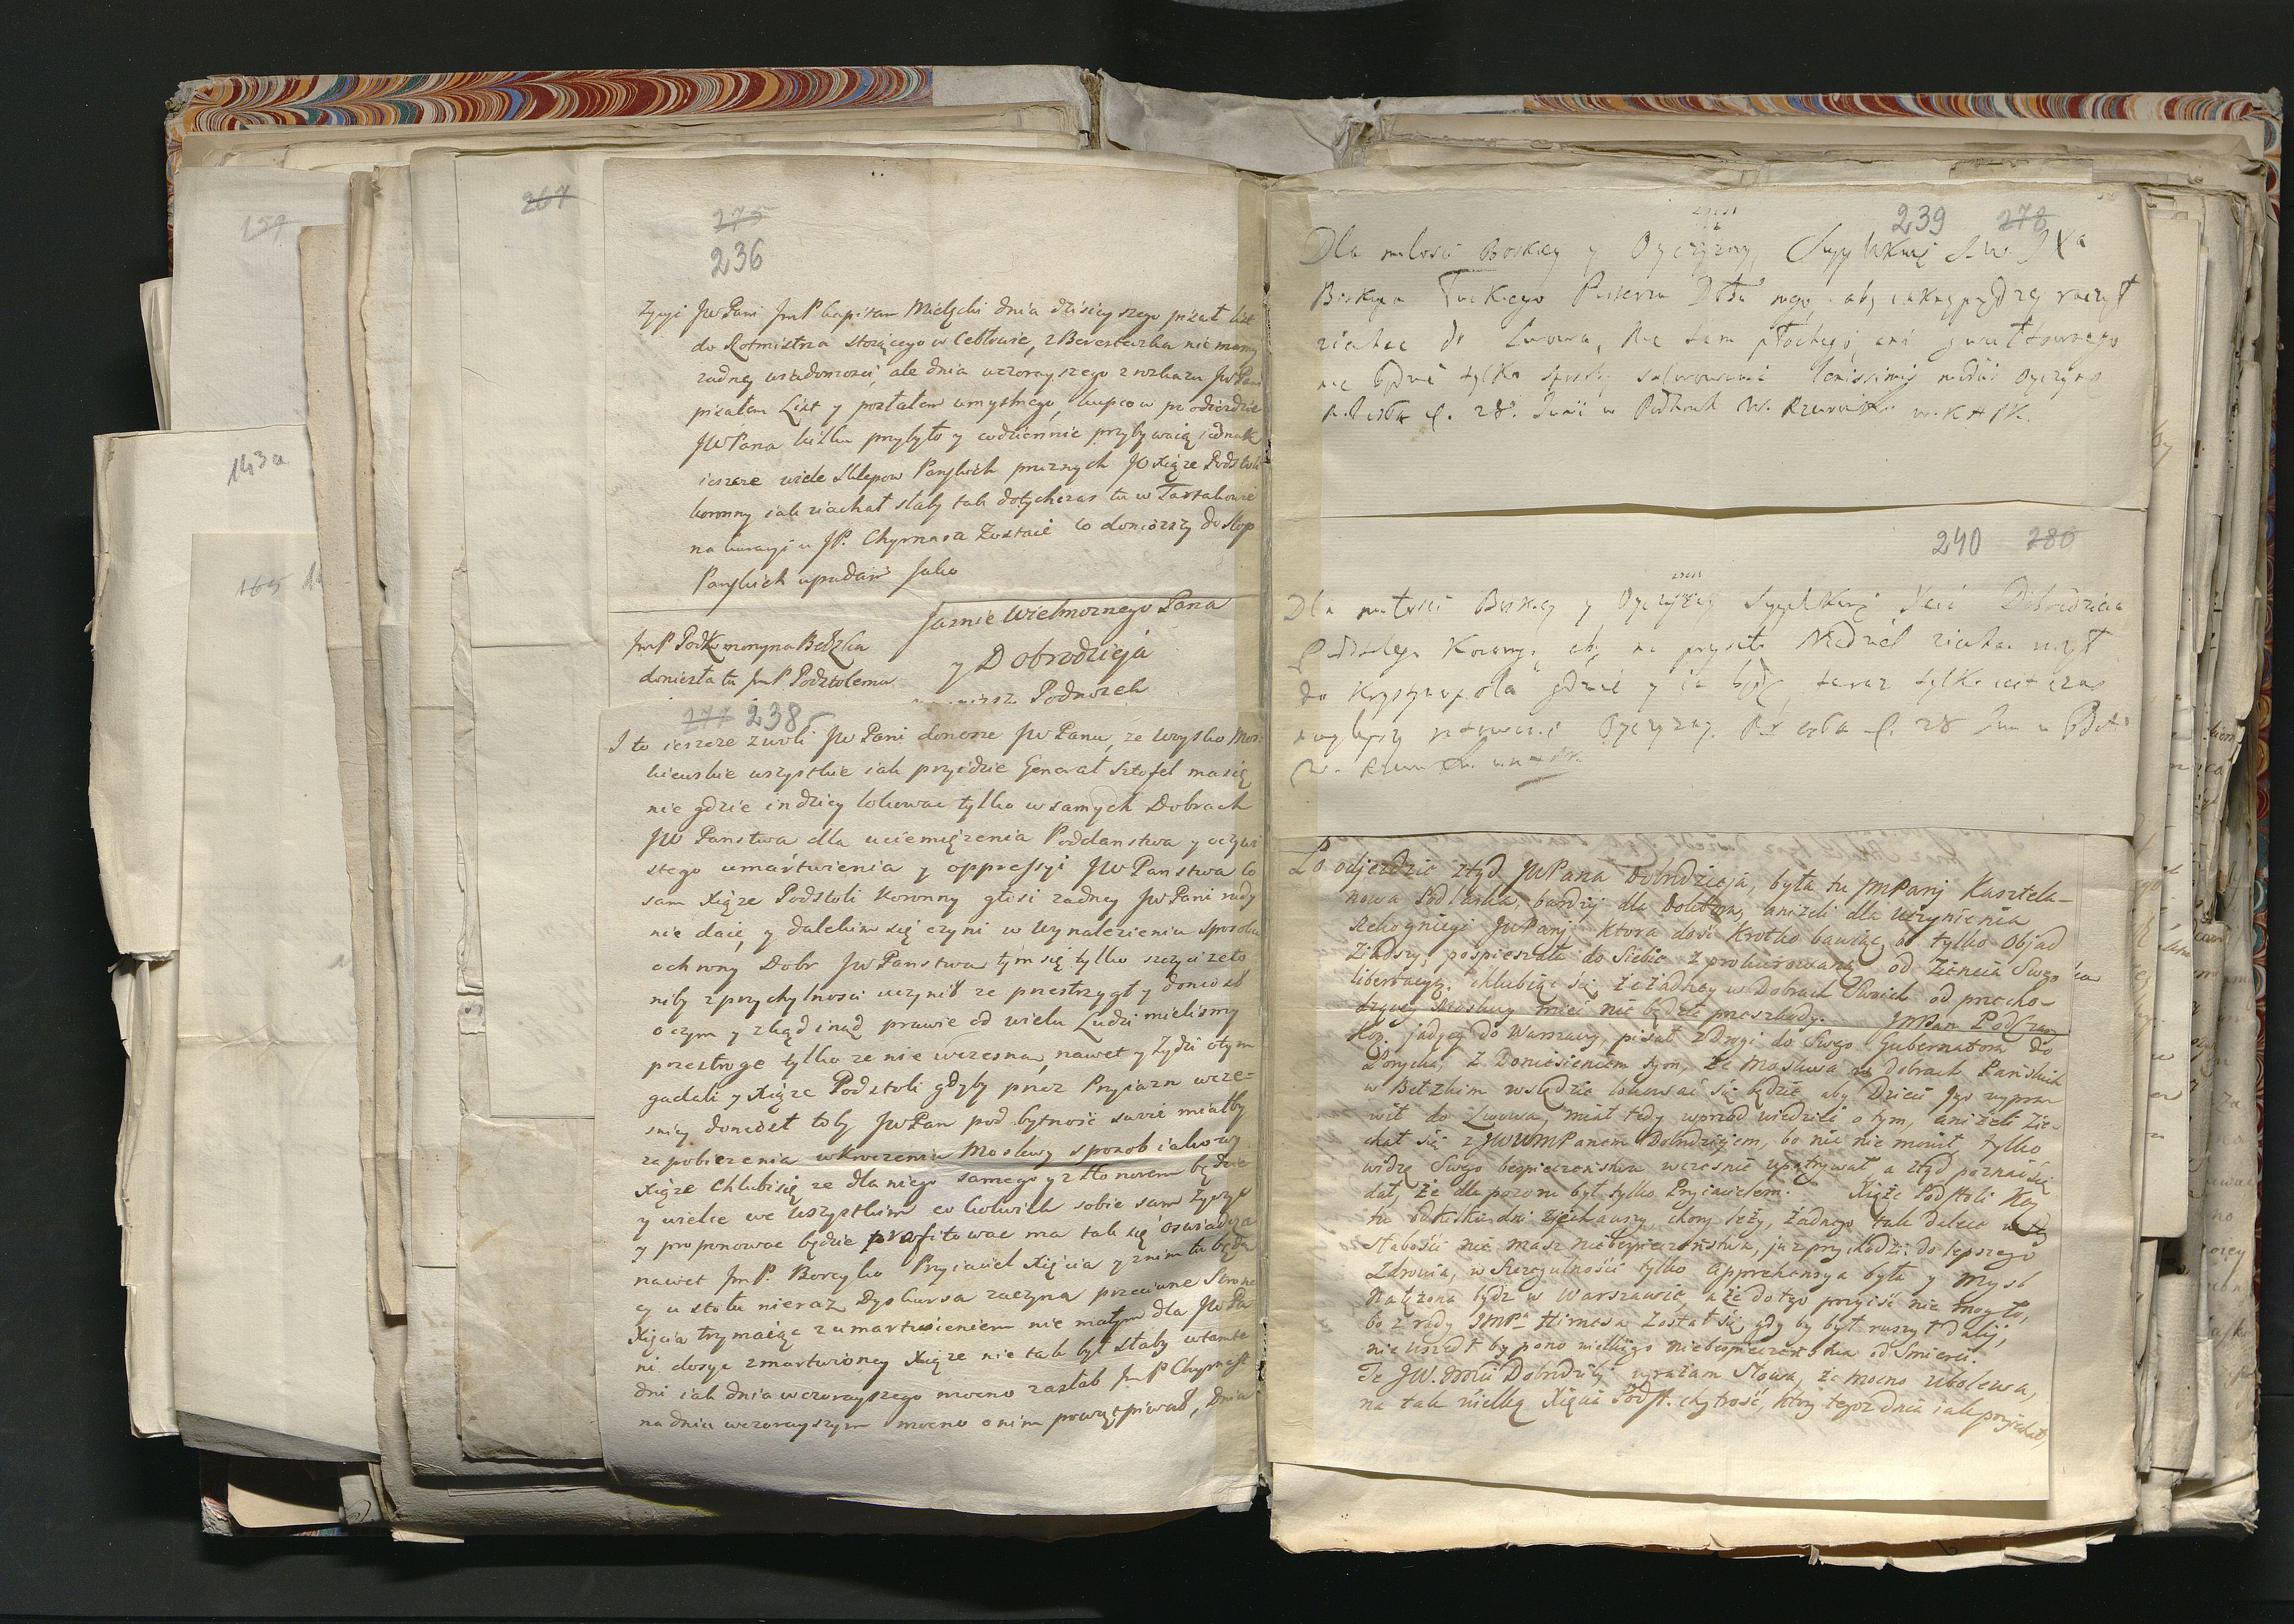 267
259
143a
165
275
236
Zyczi JwPani JmP Kapitan Mielzcki dnia dzisieyszego pisał list
do Rotmistrza stoiącego w Cebłowie, z Beresteczka nie mamy
zadney wiadomosci, ale dnia wczorayszego z rozkazu JwPani
pisałem List y posłałem umyslnego, kupcow po odieździe
JWPana kilku przybyło y codziennie przybywaią iednak
ieszcze wiele Sklepow Panskich prożnych JO Xiąże Podstoli
koronny iak ziachał słaby tak dotychczas tu w Tartakowie
na kuracyi u JP. Chyrnasa Zostaie co doniozszy do Stop
Panskich upadam Jako
Jasnie Wielmoznego Pana
y Dobrodzieja
Podnozek
JmP Podkomorzyna Bełzka
doniesła tu JmP Podstolemu
277 238
I to ieszcze z woli JwPani donosze JwPanu, ze Woysko Mos-
kiewskie wszystkie iak przyidzie Generał Sztofel ma się
nie gdzie indziey lokowac tylko w samych Dobrach
JW Panstwa dla uciemięzenia Poddanstwa y oczywi
stego umartwienia y oppressyi JWPanstwa co
sam Xiąze Podstoli Koronny głosi zadney JwPani rady
nie daie, y dalekim się czyni w wynalezieniu sposobu
ochrony Dobr JwPanstwa tym się tylko szczyci ze to
niby z przychylnosci uczynił ze przestrzygł y doniosł
o czym y zkąd inąd prawie od wielu Ludzi mielismy
przestroge tylko ze nie wczesna, nawet y Zydzi o tym
gadali y Xiąze Podstoli gdyby przez Przyiazn wcze-
sniey doniosł toby JwPan pod bytność swoie miałby
zapobiezenia wkroczeniu Moskwy sposob iakowy
Xiąze Chlubi się ze dla niego samego y z Honorem będzie
y wielce we wszystkim co kolwiek sobie sam życzyć
y proponowac będzie profitowac ma tak się oswiadcza
nawet JmP. Boreyko Przyiaciel Xięcia y z nim tu będą
cy u stołu nieraz Dyskursa zaczyna przeciwne Strone
Xięcia trzymaiąc z umartwieniem nie małym dla JwPa
ni dosyc zmartwioney Xiąze nie tak był słaby w tamte
dni iak dnia wczorayszego mocno zasłab JmP Chyrnass
na dniu wczorayszym mocno o nim powątpiwał, Dnia
239 278
Dla miłosci Boskiey y Oyczyzny, Supplikuię J.W. JXa
Biskupa Łuckiego Pasterza Dbła mego, aby iaknayprędzey raczył
ziachac do Lwowa, nic tam płochego, ani gwałtownego
nie będzie tylko sposoby salwowania lenissimis mediis Oyczyzny
28. Junii w Podhorc. W. Rzewuski w. K H P K.
240 280
Dla miłości Boskiey y Oyczyzny Supplikuię Xcia Dobrodzieia
Podstolego Koronnego, aby na przyszło Niedziel ziachac raczył
do Krystynopola gdzie y ia będę teraz tylko iest czas
naylepszy ratowania Oyczyzny. 28 Jun w Podh
W. Rzewuski
Po odjezdzie ztąd JWPana Dobrodzieja, była tu JmPani Kasztela-
nowa Podlaska, bardziy dla Doktora, aniżeli dla uczynienia
Rekognicyi JWPani ktora dość krotko bawiąc bo tylko Objad
Ziadłszy, pospieszała do Siebie z prokurowaney od Zięcia Swego
libertacyi. chlubiąc się że żadney w Dobrach Swoich od przecho-
dzącey Moskwy mieć nie będzie przeszkody. JmPan Podczaszy
Kop. jadący do Warszawy, pisał z Drogi do Swego Gubernatora do
Porycka, z Doniesieniem tym, że Moskwa w dobrach Pańskich
w Bełzkim wszędzie lokować się będzie, aby Dzieci Jego wypra-
wił do Lwowa, miał tedy wprzod wiedzieć o tym, aniżeli Zie-
chał się z JWWMPanem Dobrodziejem, bo nic nie mowił, tylko
widzę Swego bezpieczeństwa wcześnie upatrywał, a ztąd poznać się
dał, że dla pozoru był tylko Przyiacielem. Xiąże Podstoli Kor
tu odkilku dni zjechawszy, chory leży, żadnego tak dalece w tey
słabości nie masz niebezpieczeństwa, już przychodzi do lepszego
Zdrowia, w Szczegulności tylko apprehensya była y Mysl
Natężona bydź w Warszawie, a że do tego przyiść nie mogło,
bo z rady JmPa Hirnesa Został się, gdy by był ruszył dalij,
nie uszedł by pono wielkiego niebezpieczeństwa od Smierci.
Te JW. Mości Dobrodziki wyrażam Słowa, że mocno ubolewa,
na tak wielką Xięcia Podst. chytrość, ktory tegoż dnia iak przyiechał,